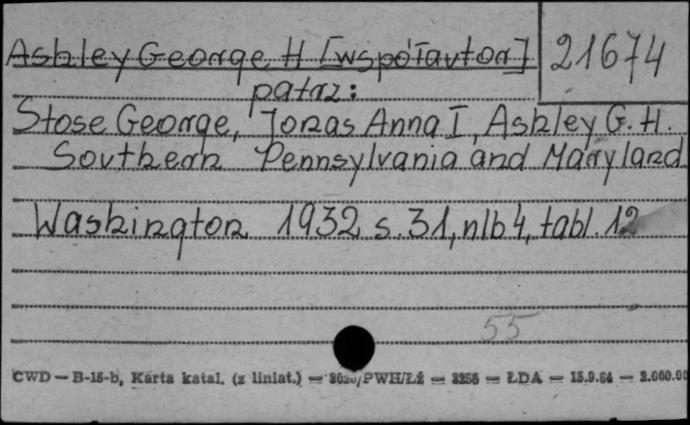 Ashley George H [współautor]
21674
patrz:
Stose George, Jonas Anna I, Ashley G. H.
Southern Pennsylvania and Maryland
Washington 1932 s. 31, nlb 4, tabl. 12
55
CWD — B-15-b, Karta katal. (z liniat.) — /PWH/Łź — 3256 — ŁDA — 15.9.64 — 2.000.00